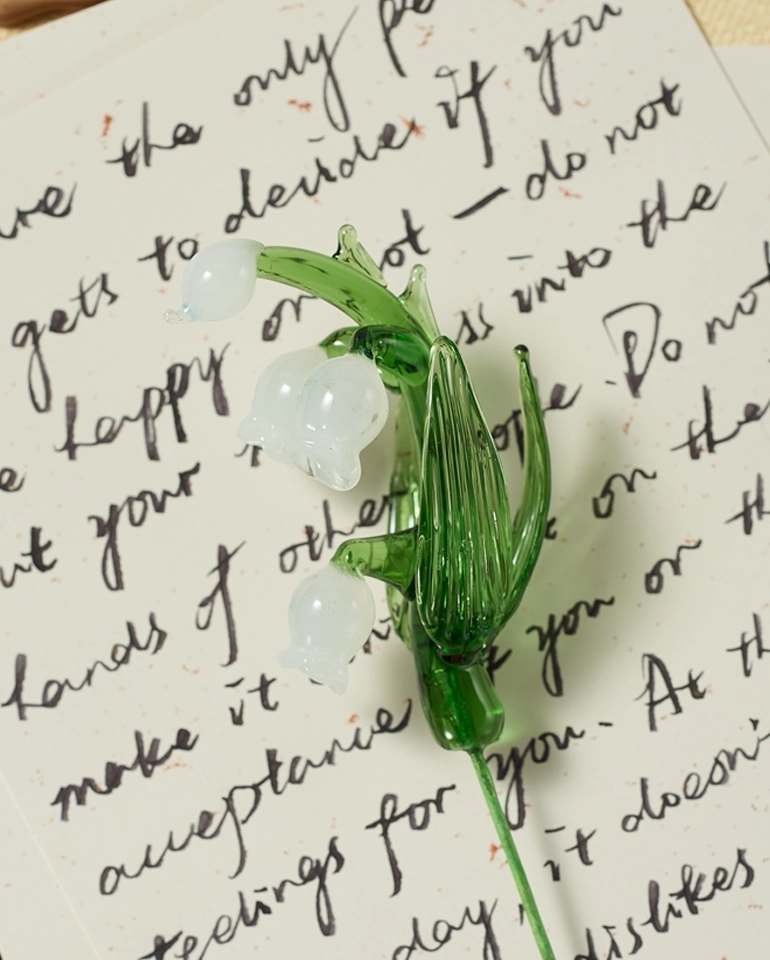 the only pe
gets to decide if you
happy or not — do not
ut your ss into the
hands of other ope. Do not
make it on the
acceptance you on th
feelings for you. At th
day, it doesn'
dislikes